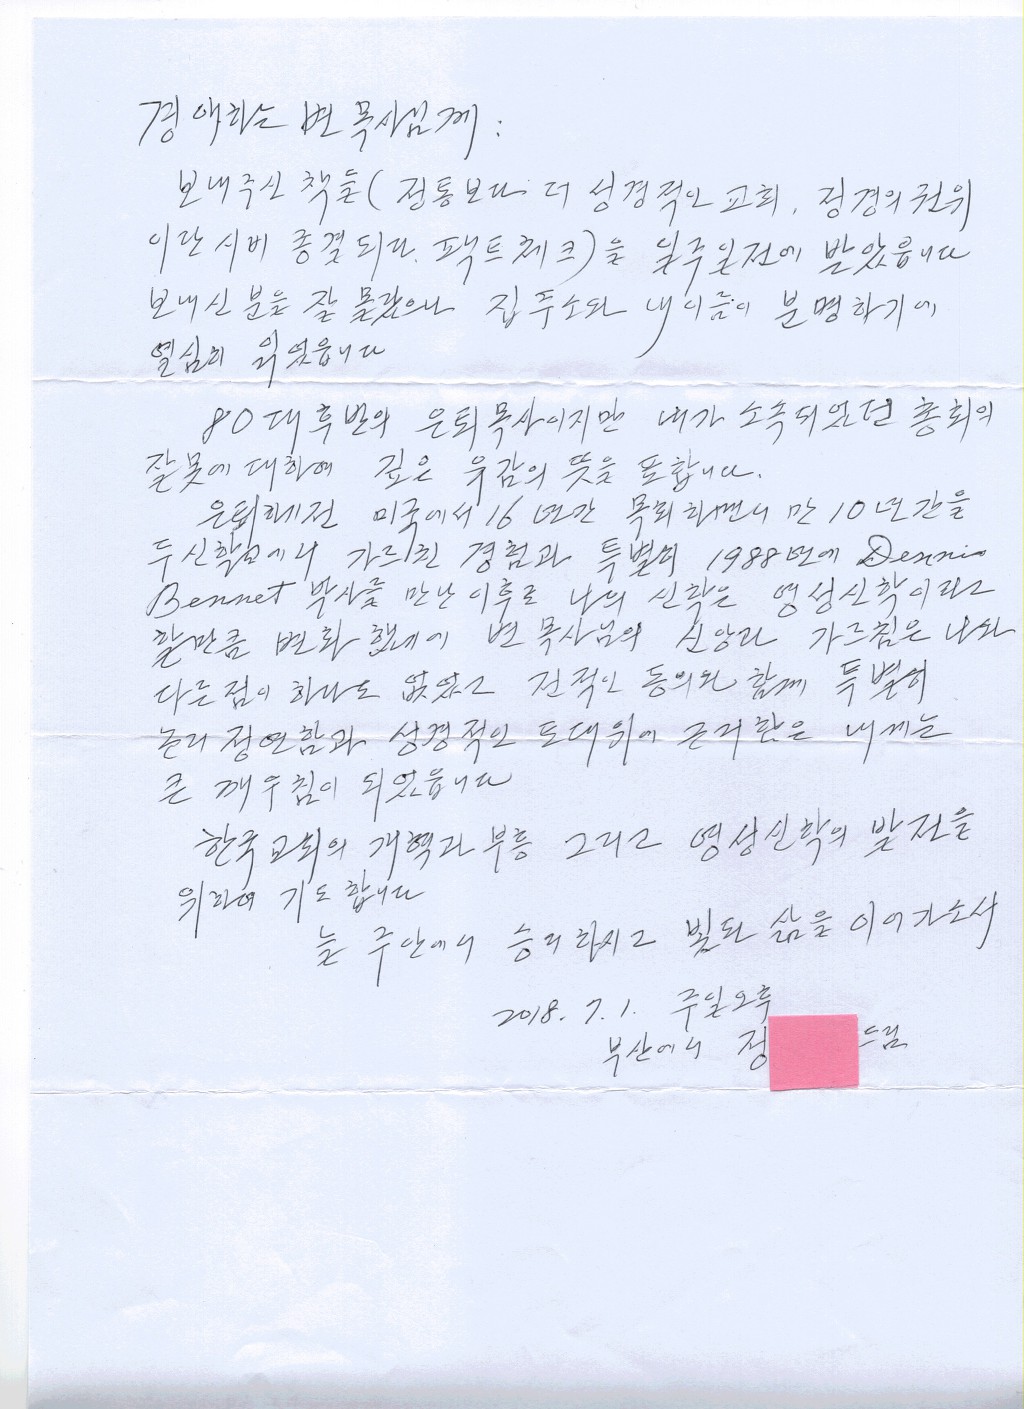 경애하는 변 목사님께:
보내주신 책들( 정통보다 더 성경적인 교회, 정경의 권위
이단시비 종결되다. 팩트체크)을 일주일전에 받았읍니다
보내신 분을 잘 몰랐으나 집주소와 내 이름이 분명하기에
열심히 읽었읍니다
80대 후반의 은퇴목사이지만 내가 소속되었던 총회의
잘못에 대하여 깊은 유감의 뜻을 표합니다.
은퇴하기전 미국에서 16년간 목회하면서 만 10년간을
두 신학교에서 가르친 경험과 특별히 1988년에 Dennis
Bennet 박사를 만난 이후로 나의 신학은 영성신학이라고
할만큼 변화했기에 변 목사님의 신앙과 가르침은 나와
다른점이 하나도 없었고 전적인 동의와 함께 특별히
논리 정연함과 성경적인 토대위에 근거함은 내게는
큰 깨우침이 되었읍니다
한국교회의 개혁과 부흥 그리고 영성신학의 발전을
위하여 기도합니다
늘 주안에서 승리하시고 빛된 삶을 이어가소서
2018. 7. 1. 주일오후
부산에서 정 드림